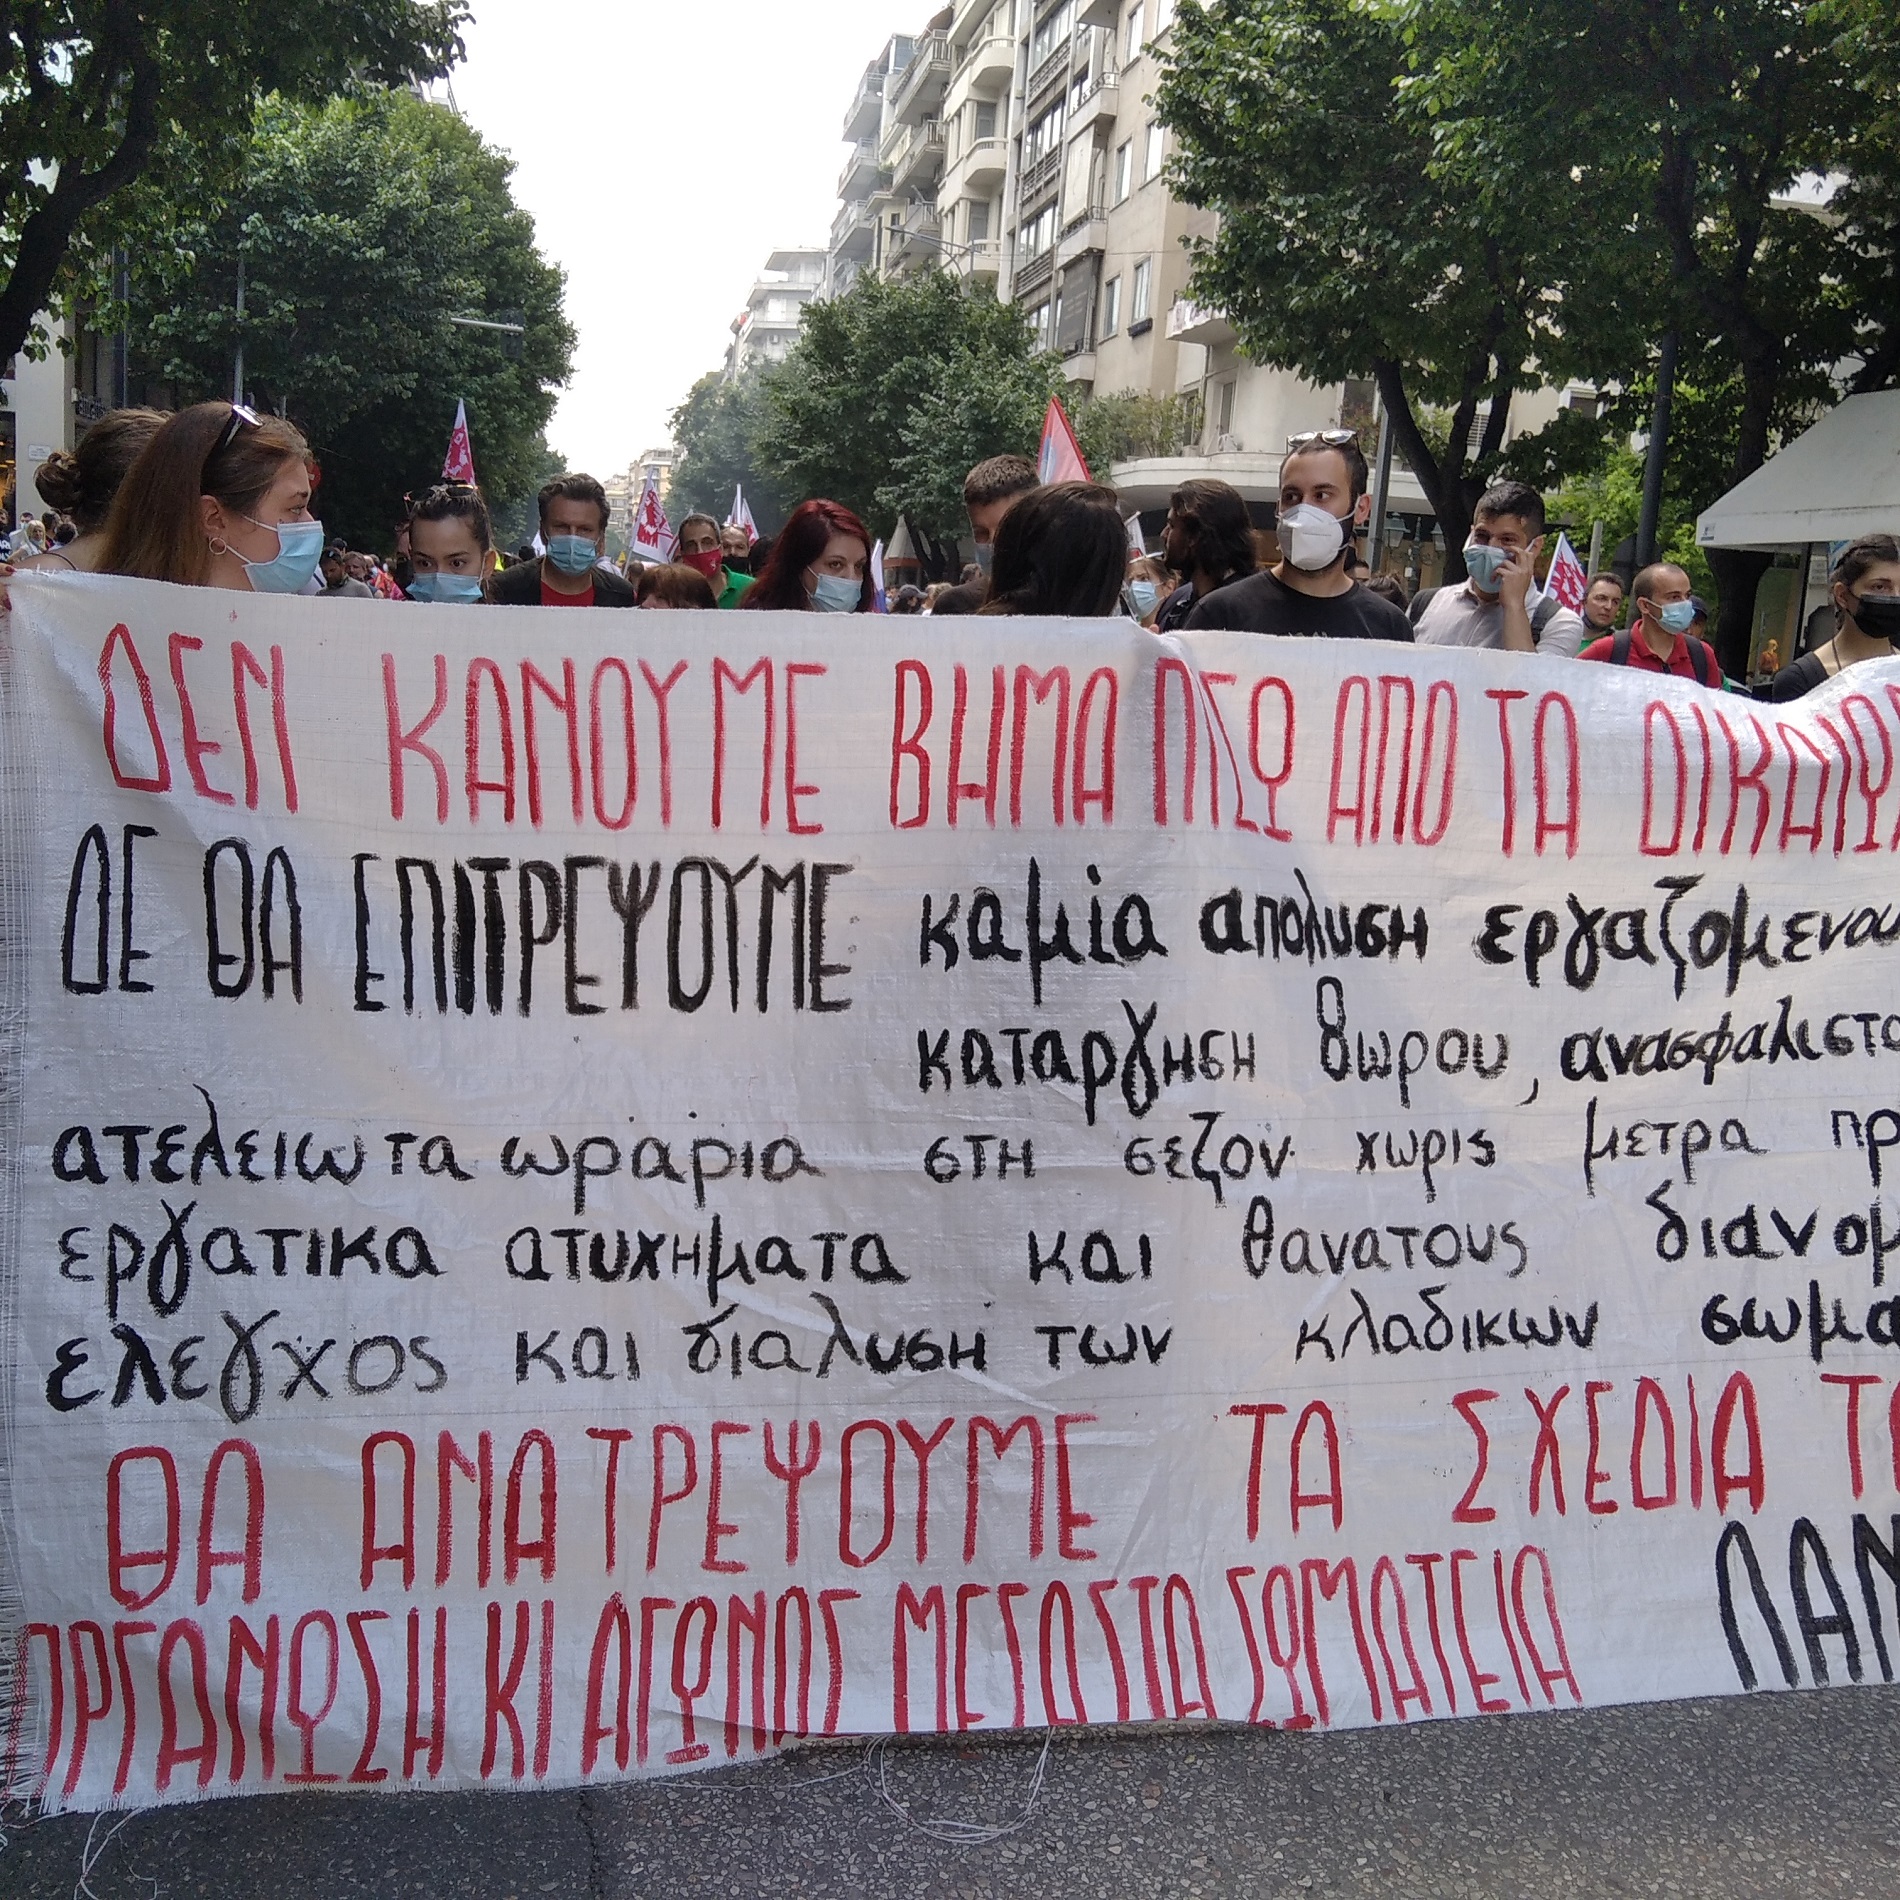 ΔΕΝ ΚΑΝΟΥΜΕ ΒΗΜΑ ΠΙΣΩ ΑΠΟ ΤΑ ΔΙΚΑΙΩ
ΔΕ ΘΑ ΕΠΙΤΡΕΨΟΥΜΕ καμία απόλυση εργαζομενου
καταργηση 8ωρου, ανασφαλιστο
ατελειωτα ωράρια στη σεζόν χωρις μετρα πρ
εργατικα ατυχηματα και θανατους διανομ
ελεγχος και διαλυση των κλαδικων σωμα
ΘΑ ΑΝΑΤΡΕΨΟΥΜΕ ΤΑ ΣΧΕΔΙΑ ΤΟ
ΟΡΓΑΝΩΣΗ ΚΙ ΑΓΩΝΑΣ ΜΕΣΑ ΣΤΑ ΣΩΜΑΤΕΙΑ ΛΑΝ